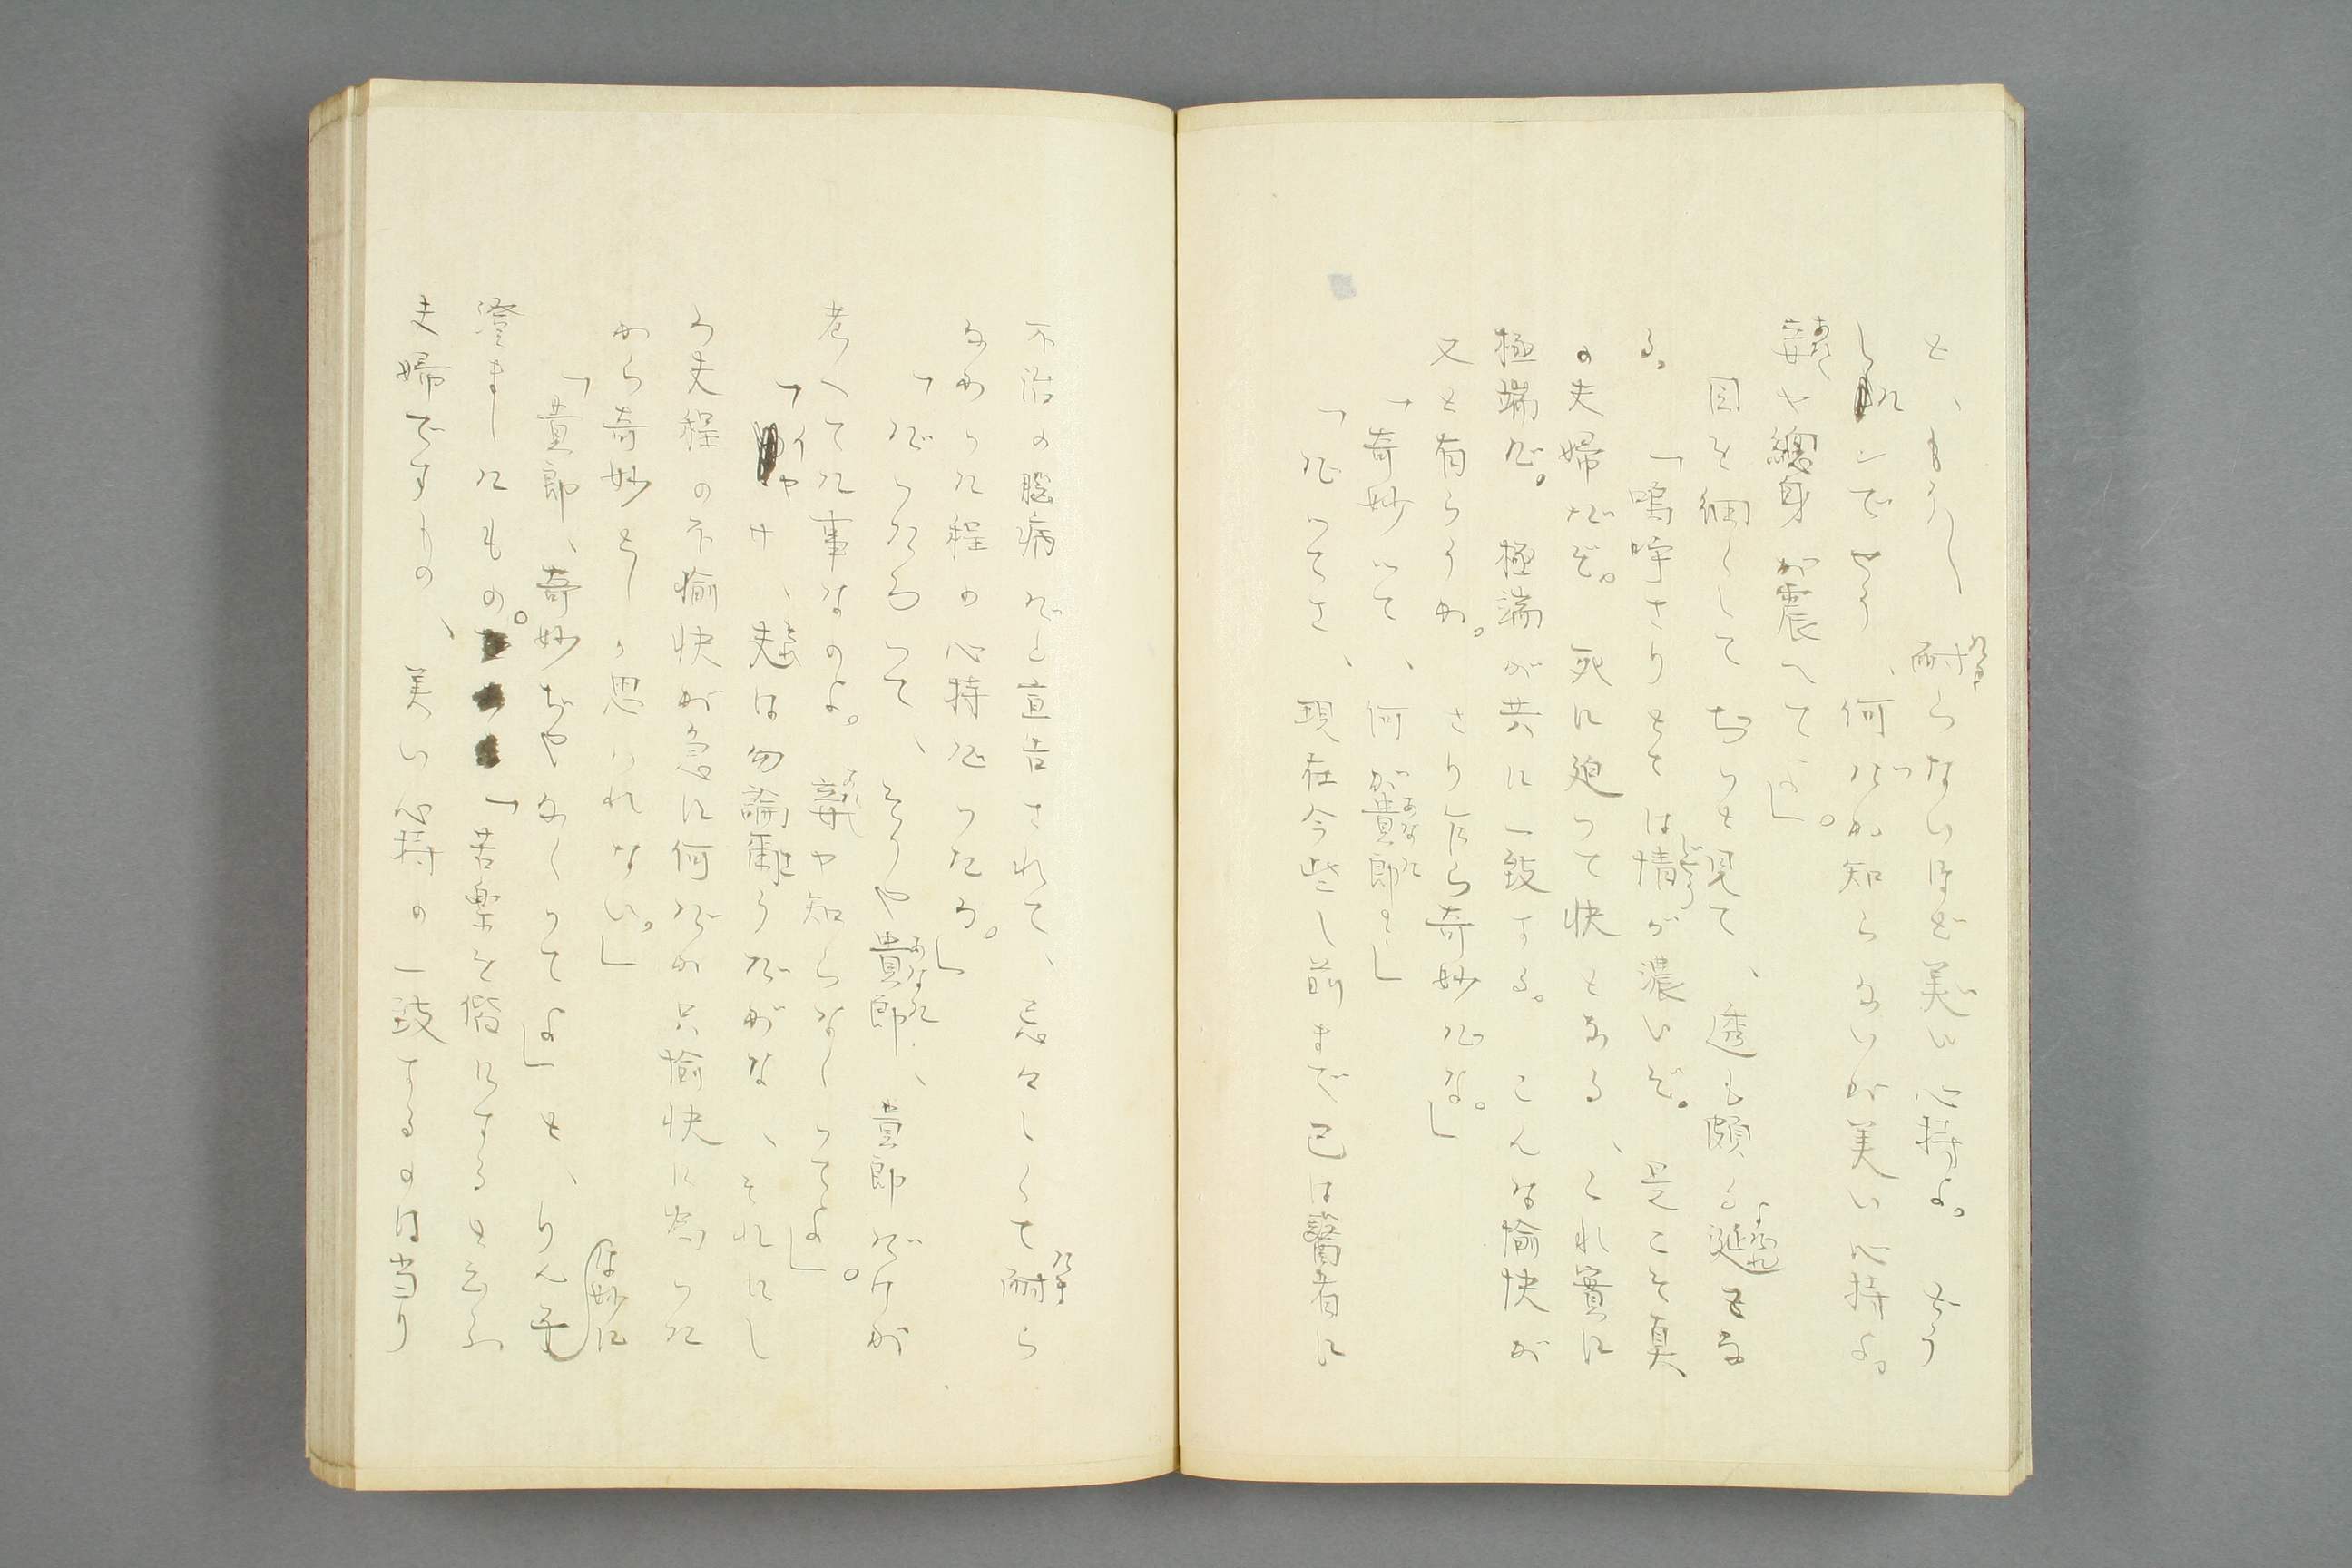 と、もう〳〵耐らないほど美い心持よ。どう
しれンでせう、何だか知らないが美い心持よ。
妾や總身が震へて、よ」。
目を細くして凝つと見て、透も頗る遽もな
る。「嗚呼さりとては情が濃いぞ。是こそ真
の夫婦だぞ。死に迫つて快となる、これ實に
極端だ。極端が共に一致する。こんな愉快が
又と有らうか。さり乍ら奇妙だな。」
「奇妙つて、何が貴郎よ」
「だつてさ、現在今些し前まで已は醫者に
不治の脳病だと宣告されて、忌々しくて耐ら
なかつた程の心持だつたる。」
「だつたるつて、そりや貴郎、貴郎だけが
考へてた事なのよ。妾や知らなくつてよ」。
「イヤサ、夫は勿論爾うだがな、それにし
ろ夫程の不愉快が急に何だか只愉快に為つた
から奇妙としか思はれない。」
「貴郎、奇妙ぢやなくつてよ」と、りん子は妙に
澄ましたもの。「苦樂を偕にすると云ふ
夫婦ですもの、美い心持の一致するのは当り